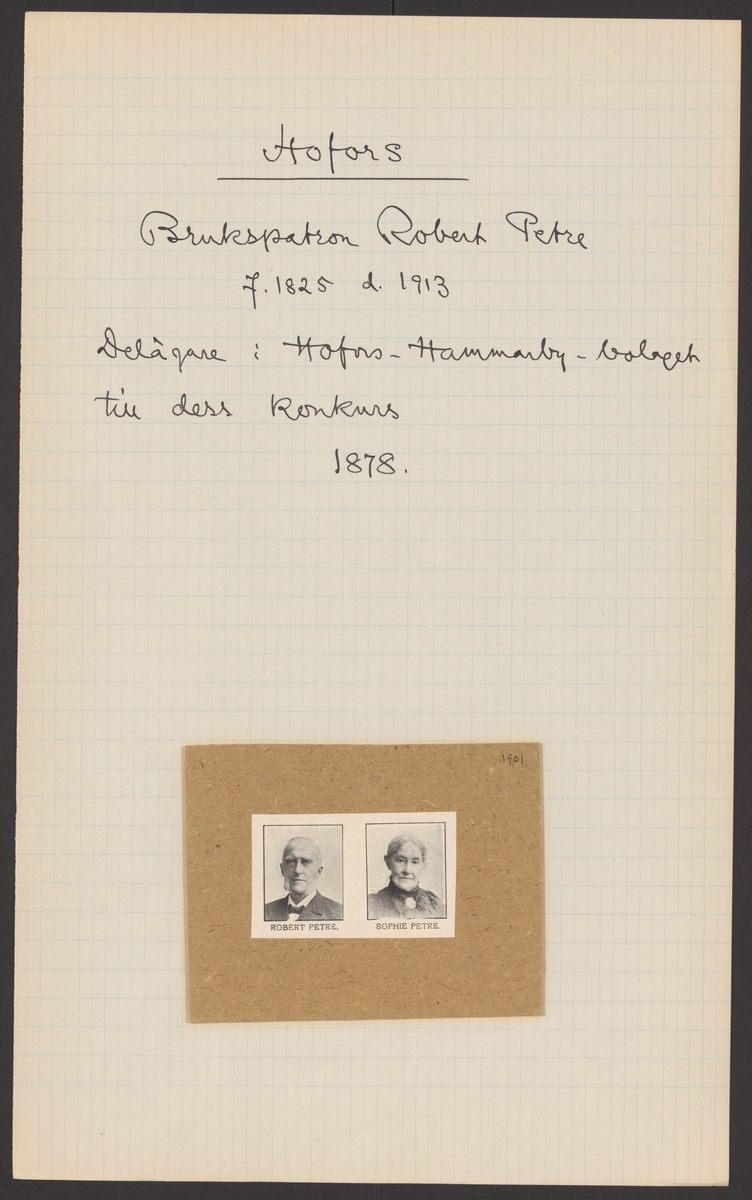 Hofors
Brukspatron Robert Petre
f. 1825 d. 1913
Delägare i Hofors-Hammarby-bolaget
till dess konkurs
1878.
1901
ROBERT PETRE. SOPHIE PETRE.